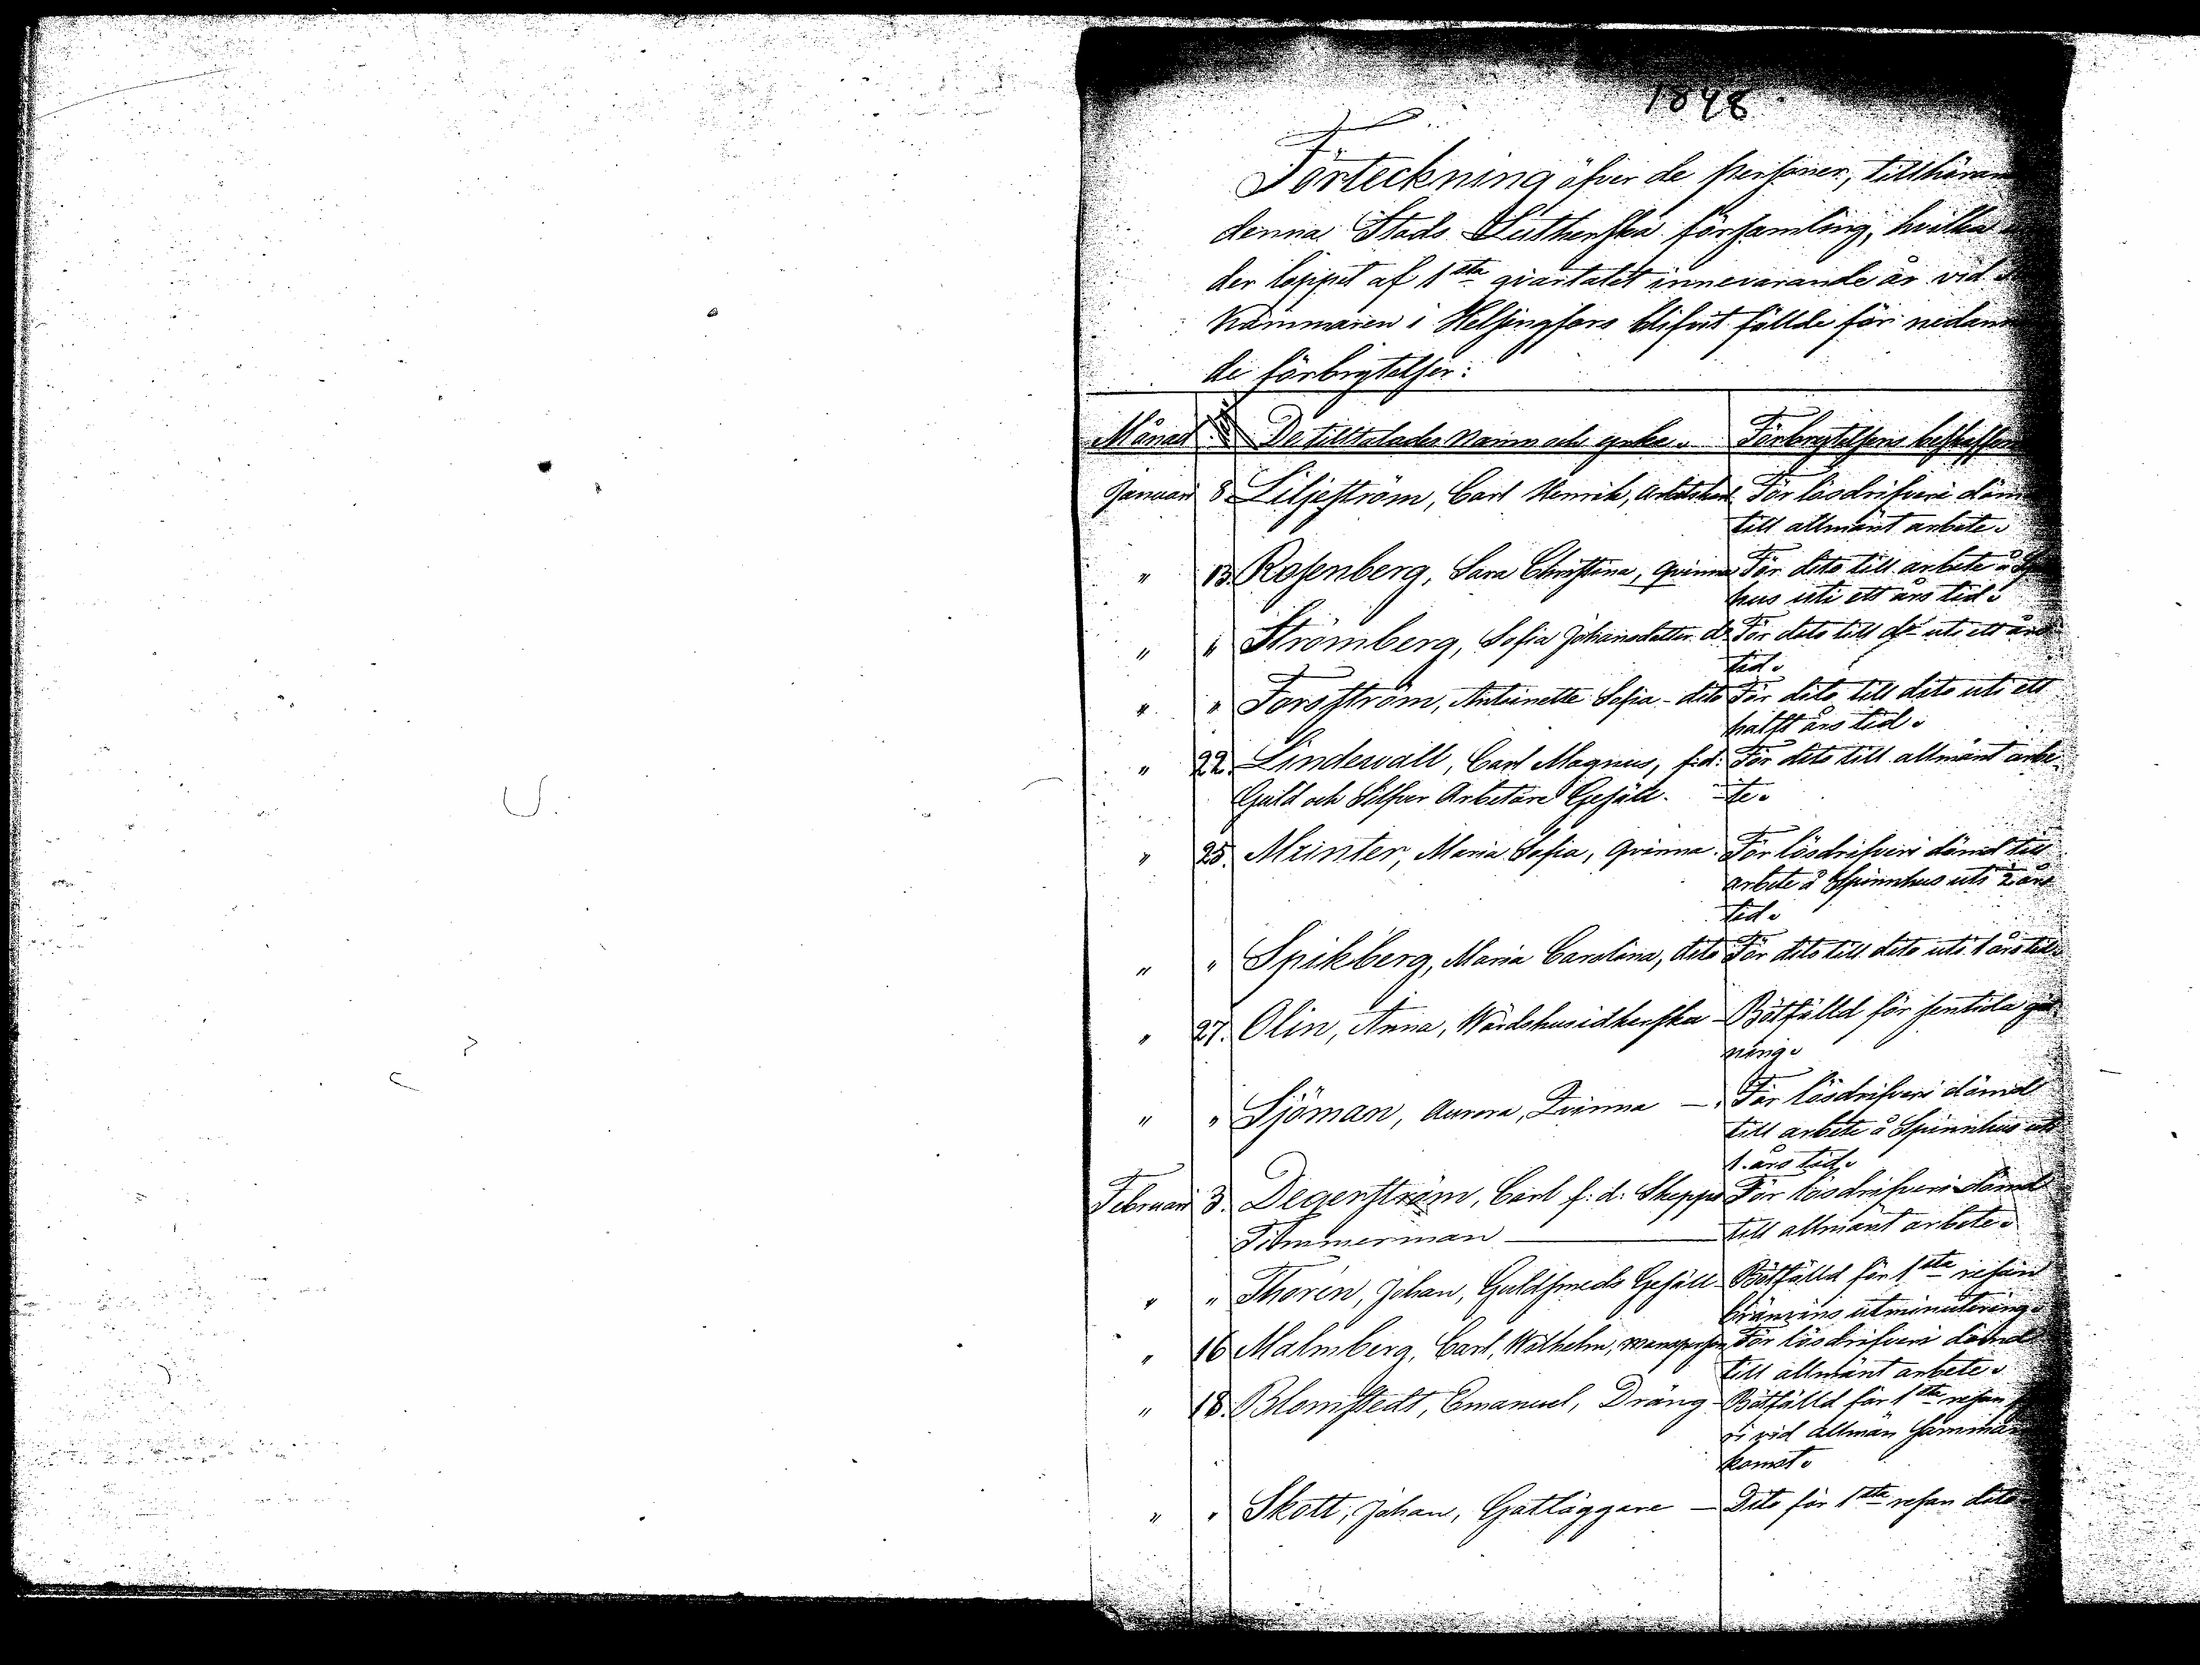 1848.
Förteckning öfver de personer, tillhöran
denna Stads Lutherska församling, hvilka
der loppet af 1sta qvartalet innevarande år vid
Kämmaren i Helsingfors blifvit fällde för nedan
de förbrytelser:
Månad De tilltalades Namn och yrke. Förbrytelsens beskaffen
Januari 8. Liljeström, Carl Henrik, Arbetskarl För lösdrifveri dömd
till allmänt arbete.
" 13. Rosenberg, Sara Christina, Qvinna För dito till arbete å
hus uti ett års tid.
" " Strömberg, Sofia Johansdotter do För dito till do uti ett års
tid.
" " Forsström, Antoinette Sofia - dito För dito till dito uti ett
halft års tid.
" 22. Lindewall, Carl Magnus, f.d. För dito till allmänt arbe-
Guld och Silfver Arbetare Gesäll. te.
" 25. Meinter, Maria Sofia, Qvinna. För lösdrifveri dömd till
arbete å Spinnhus uti 2 års
tid.
" " Spikberg, Maria Carolina, dito För dito till dito uti 1 års tid.
" 27. Olin, Anna, Wärdshusidkerska - Bötfälld för sentida
ning.
" " Sjöman, Aurora, Qvinna - För lösdrifveri dömd
till arbete å Spinnhus uti
1. års tid.
Februari 3. Degerström, Carl f: d: Skepps För lösdrifveri dömd
Timmerman - till allmänt arbete.
" " Thorén, Johan, Guldsmeds Gesäll - Bötfälld för 1sta resan
bränvins utminutering.
" 16 Malmberg, Carl, Wilhelm, Mansperson För lösdrifveri dömd
till allmänt arbete.
" 18. Blomstedt, Emanuel, Dräng - Bötfälld för 1sta resan
ri vid allmän samman
komst.
" " Skott, Johan, Gatläggare - Dito för 1sta resan dito